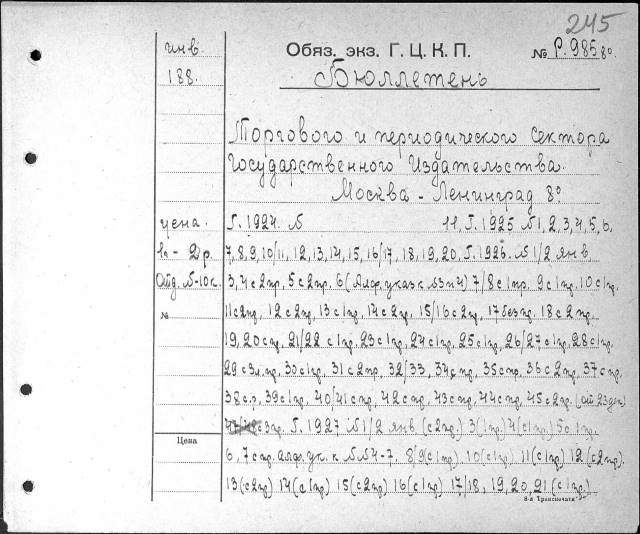 245
инв. Обяз. экз. Г. Ц. К. П. № Р. 985 8°
188. Бюллетень
Торгового и периодического сектора
Государственного Издательства.
Москва - Ленинград 8°
цена. Г. 1924. № 11, Г. 1925 № 1, 2, 3, 4, 5, 6,
- 2 р. 7, 8, 9, 10/11, 12, 13, 14, 15, 16/17, 18, 19, 20. Г. 1926. № 1/2 янв.
Отд. №-10к. 3, 4 с 2 пр, 5 с 2 пр. 6 (Алф. указ к №3 и 4) 7/8 с 1 пр. 9 с 1 пр. 10 с 1 пр.
№ 11 с 2 пр, 12 с 2 пр, 13 с 1 пр, 14 с 2 пр, 15/16 с 2 пр, 17 без пр. 18 с 2 пр.
19, 20 с пр, 21/22 с 1 пр. 23 с 1 пр. 24 с 1 пр. 25 с 1 пр, 26/27 с 1 пр, 28 с 1 пр.
29 с 3 пр, 30 с 1 пр, 31 с 2 пр, 32/33, 34 с пр, 35 с пр. 36 с 2 пр, 37 с пр.
38 с 39 с 1 пр. 40/41 с пр, 42 с пр, 43 с пр, 44 с пр, 45 с 2 пр. (от 23 дек)
Г. 1927 № 1/2 янв. (с 2 пр.) 3 (1 пр.) 4 (с 1 пр.) 5 с 1 пр.
Цена
6, 7 с пр. алф. ук. к №№ 4-7, 8/9 (с 1 пр) 10 (с 1 пр) 11 (с 1 пр) 12 (с 2 пр).
13 (с 2 пр) 14 (с 1 пр) 15 (с 2 пр) 16 (с 1 пр) 17/18, 19, 20, 21 (с 1 пр.)
8-я Транспечати